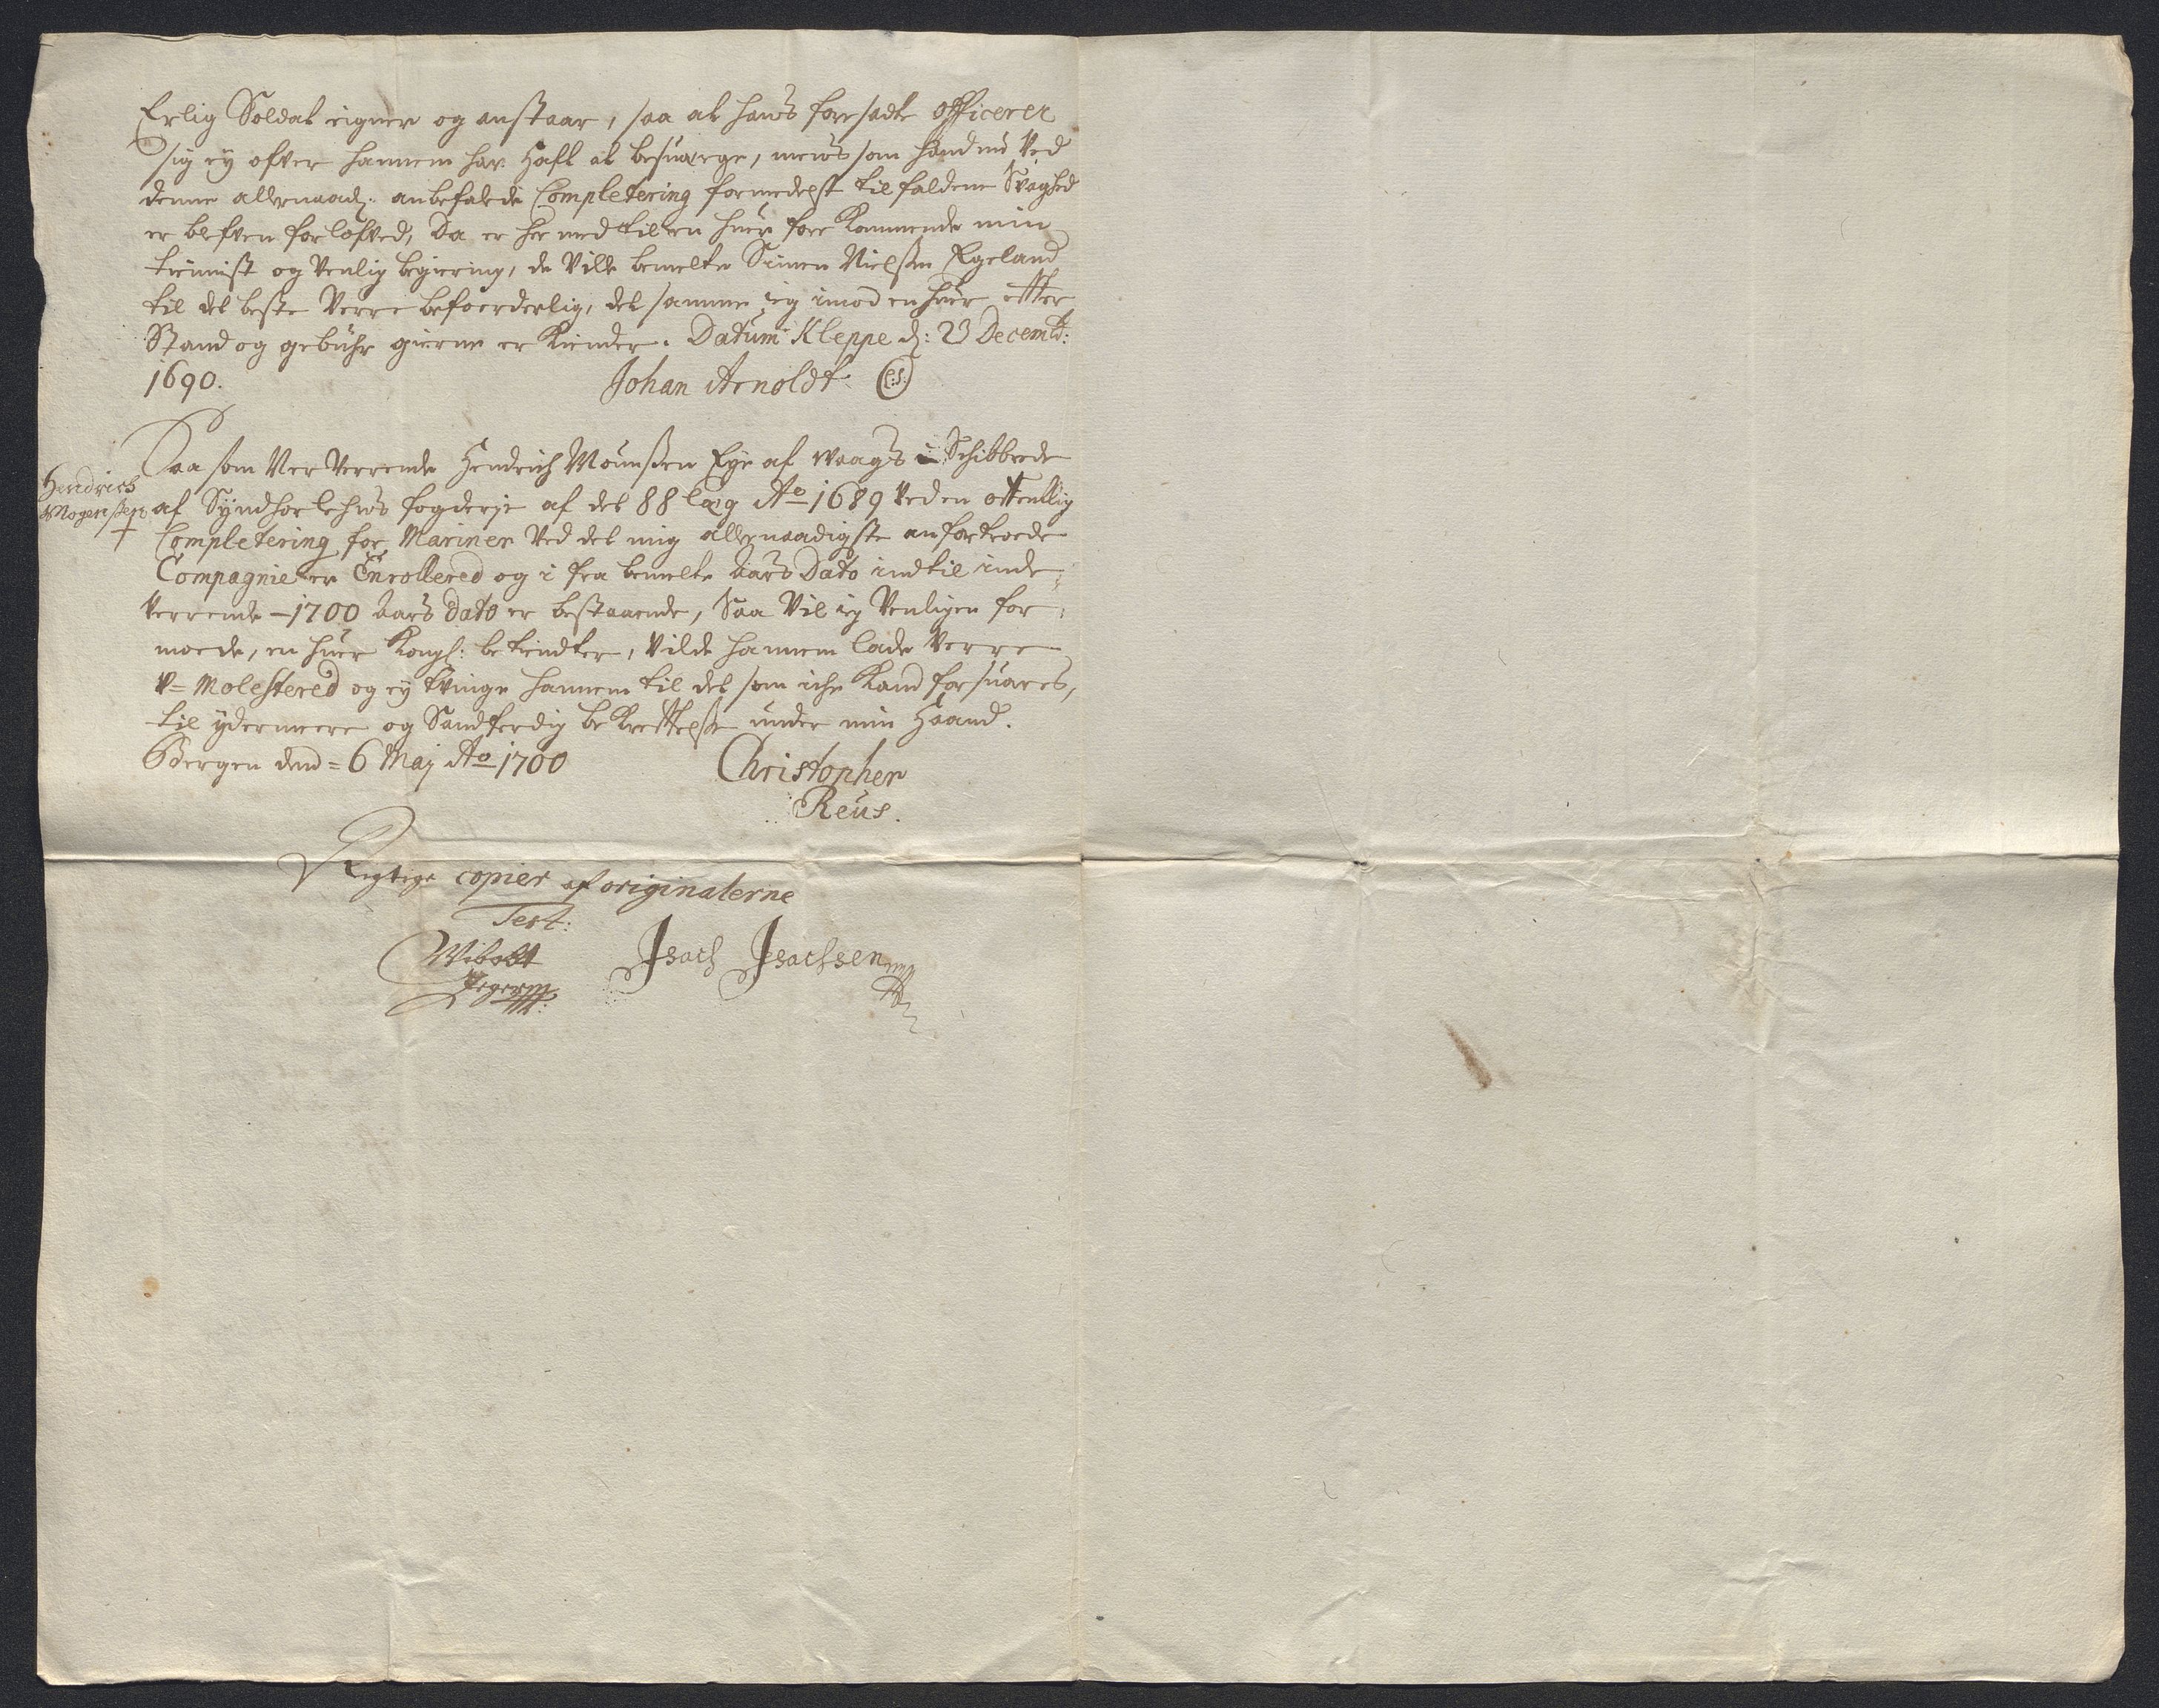 Erlig Soldat eigner og anstaar, saa at hans foresadte Officerer
sig ey ofver hannem har haft at besuærge, mens som hand nu Ved
denne allernaad: anbefalede Completering formedelst tilfaldene Svaghed
er blefven forlofved, Da er her med til en huer fore Kommende min
tienist og Venlig begiering, de Vilde bemelte Simen Nielssen Egeland
til det beste Verre befoerderlig, det samme ieg imod en huer effter
Stand og gebühr gierne er Kiender. Datum Kleppe d: 23 Decemb:
1690. Johan Arnoldt L:S:
Saa som Nerverrende Hendrich Mounssen Eye af Waags Schibbrede
Hendrich
Mogenssen
af Syndhorlehns fogderje af det 88 læg Ao 1689 Ved en offentlig
Completering for Mariner Ved det mig allernaadigste anfortroede
Compagnie er Enrollered og i fra bemelte Aars Dato indtil inde
Verrende 1700 Aars Dato er bestaaende, Saa Vil ieg Venligen for
moede, en huer Kongl: betiendter, Vilde hannem lade Verre
V= Molestered og ey tvinge hannem til det som iche Kand forsuares,
til ydermeere og Sandferdig bekreftelse under min Haand.
Bergen dend = 6 Maj Ao 1700 Christopher
Reus.
Rigtige copier af originalerne
Test:
Wibolt Isach Isachsen
Jegerm: